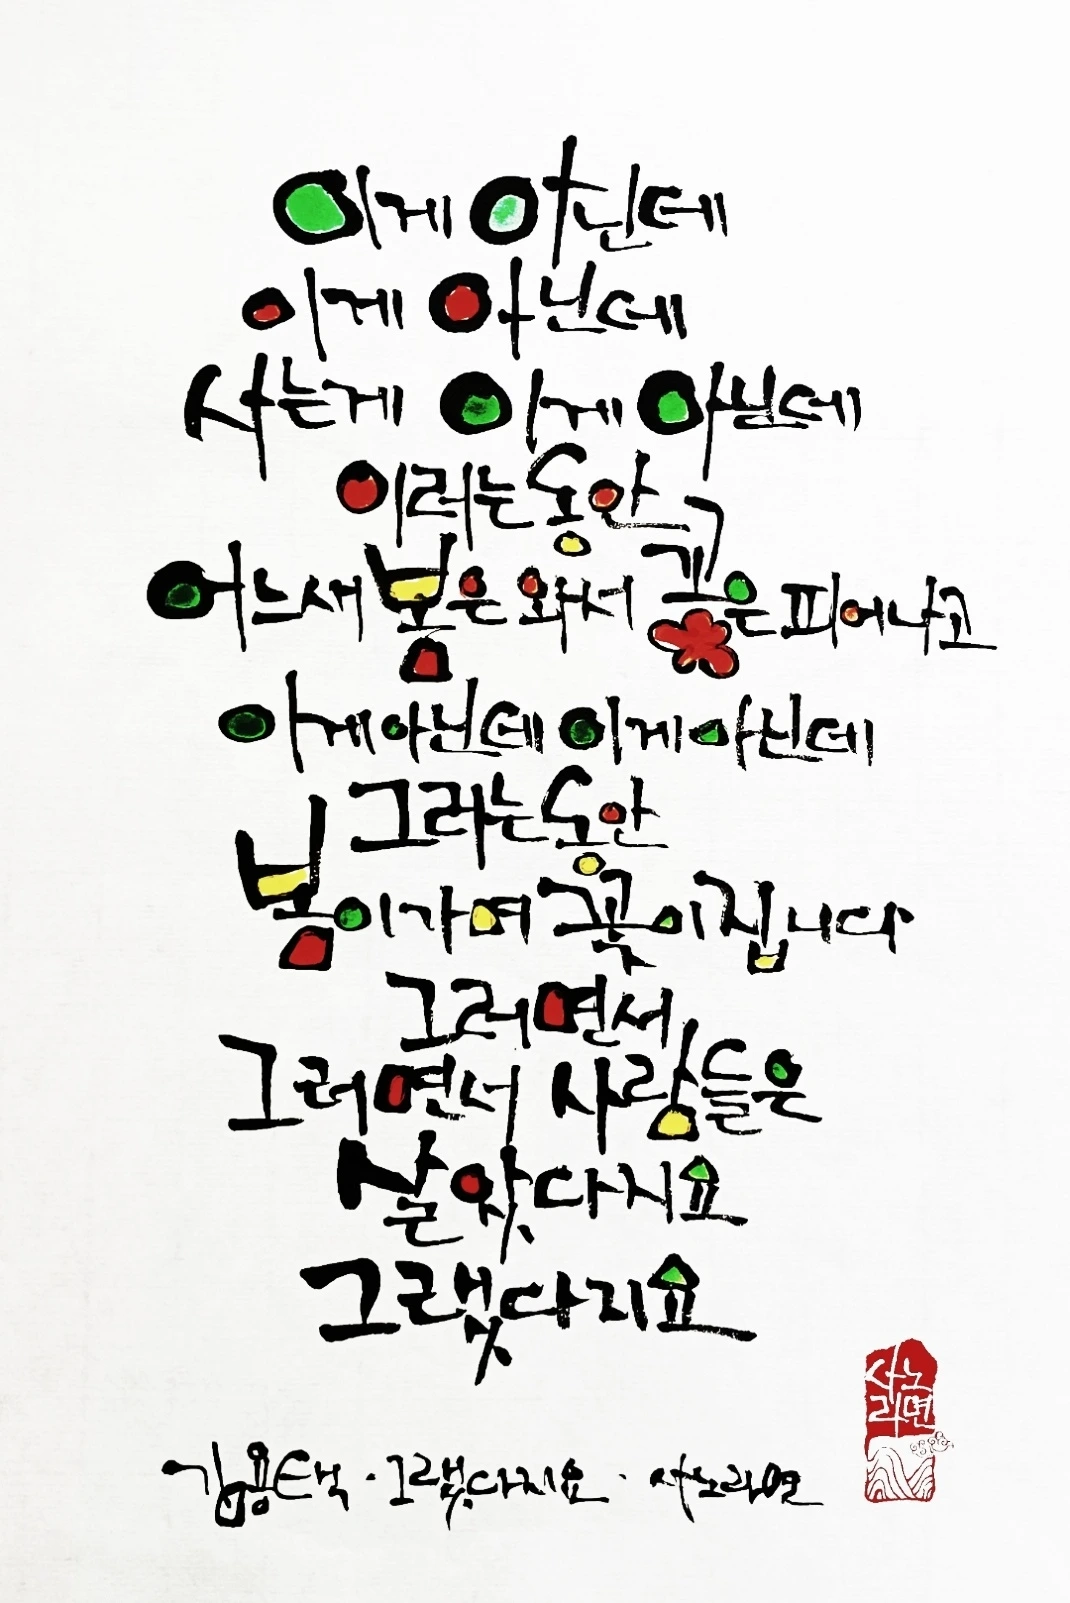 이게 아닌데
이게 아닌데
사는게 이게 아닌데
이러는 동안
어느새 봄은 와서 꽃은 피어나고
이게 아닌데 이게 아닌데
그러는 동안
봄이 가며 꽃이 집니다
그러면서
그러면서 사람들은
살았다지요
그랬다지요
김용택 · 그랬다지요 · 사노라면
사노
라면